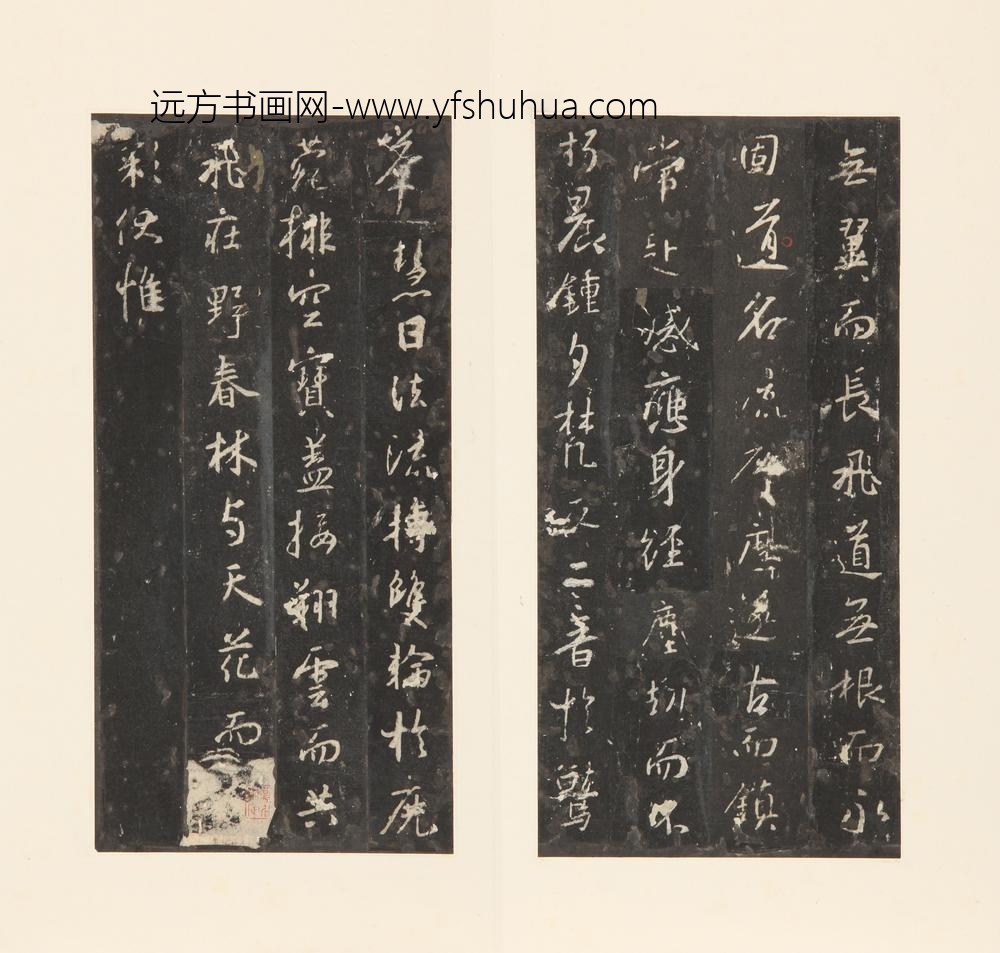 远方书画网-www.yfshuhua.com
無翼而長飛道無根而永
固道名流慶歷遂古而鎮
常赴感應身經塵劫而不
朽晨鍾夕梵交二音於鷲
峯慧日法流轉雙輪於鹿
菀排空寶蓋接翔雲而共
飛莊野春林与天花而
彩伏惟